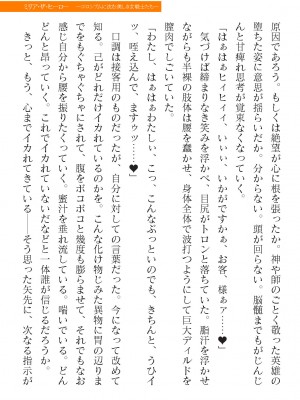 原因であろう。もしくは絶望が心に根を張ったか。神や師のごとく敬った英雄の
堕ちた姿に意思が揺らいだか。分からない。頭が回らない。脳髄までがじんじ
んと甘痺れ思考が覚束なくなっていく。
「はぁはぁヒィヒィ……いぃぃ、いかがですかぁ、お客、様ぁァ……♥」
気づけば締まりなき笑みを浮かべ、目尻がトロンと落ちていた。脂汗を浮かべ
ながらも半裸の肢体は腰を蠢かせ、身体全体で波打つようにして巨大ディルドを
膣肉でしごいていた。
「わたし、はぁはぁわたしぃ……こっ、こんなぶっといのでも、きちんと、うひィ
ッ、咥え込んで、ますゥッ……♥」
口調は接客用のものだったが、自分に対しての言葉だった。今になって改めて
知る。己がどれだけイカれているのかを。こんな化け物じみた異物に胃の辺りま
でをもぐちゃぐちゃにされて、腹をボコボコと幾度も膨らませて、それでもなお
感じ自分から腰を振りたくっていく。蜜汁を垂れ流している。喘いでいる。どん
どんと昂っていく。これでイカれていないだなどと一体誰が信じるだろうか。
きっと、もう、心までイカれてきている――そう思った矢先に、次なる指示が